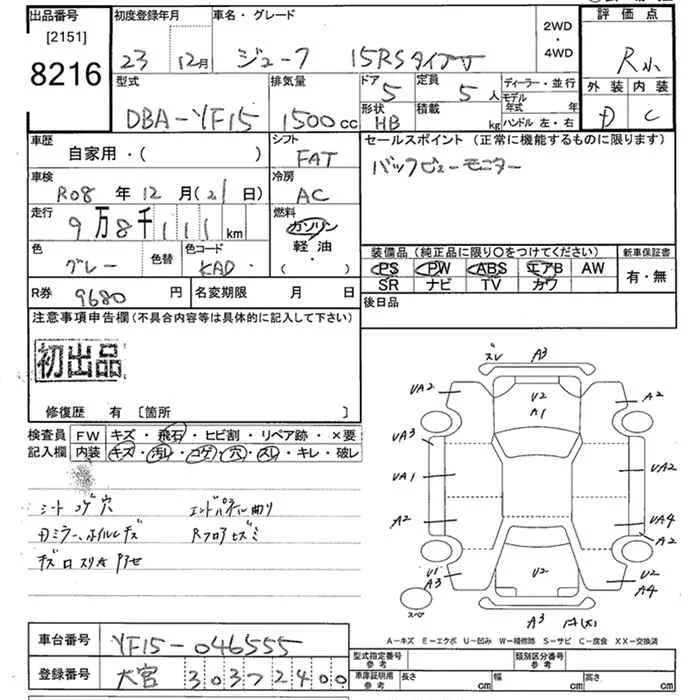 出品番号
[2151]
8216
初度登録年月
23 12月
車名・グレード
ジューク 15RSタイプV
2WD
・
4WD
評価点
R小
外装 内装
D C
型式
DBA-YF15
排気量
1500cc
ドア
5
定員
5人
形状
HB
積載
kg
ディーラー・並行
モデル年式 年
ハンドル 左・右
車歴
自家用・( )
シフト
FAT
セールスポイント (正常に機能するものに限ります)
バックビューモニター
車検
R08年12月(21日)
冷房
AC
走行
9万8千111km
燃料
ガソリン
軽油・
( )
色
グレー
色替
色コード
KAD
装備品 (純正品に限り○をつけてください)
PS PW ABS エアB AW
SR ナビ TV カワ
新車保証書
有・無
R券 9680円
名変期限 月 日
後日品
注意事項申告欄 (不具合内容等は具体的に記入して下さい)
初出品
修復歴 有 〔箇所 〕
検査員記入欄
FW キズ・飛石・ヒビ割・リペア跡・×要
内装 キズ・汚レ・コゲ・穴・スレ・キレ・破レ
シートコゲ穴 エンドパネル曲り
Dミラー、ホイルキズ Rフロアヒズミ
ズレ A3
UA2
U2
A1
A2
UA3
UA1
UA2
A2
UA4
A2
U1
A3
U2
U2
A4
スペア
A3
A-キズ E-エクボ U-凹み W-補修跡 S-サビ C-腐食 XX-交換済
車台番号 YF15-046555
登録番号 大宮 303 2 2400
型式指定番号 参考
類別区分番号 参考
車庫証明用 参考 長さ cm 幅 cm 高さ cm